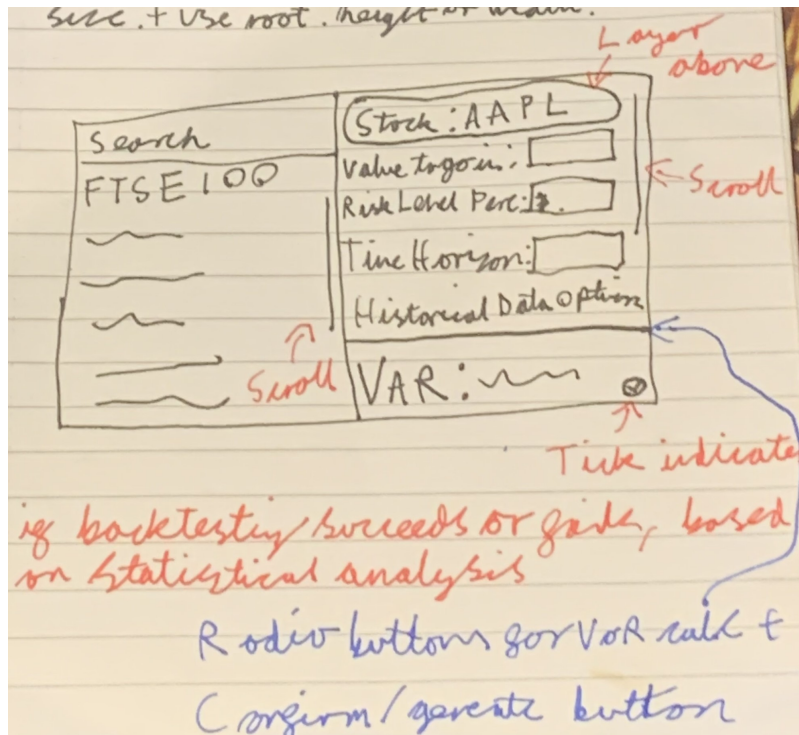 size. + Use root. height or width.
Layer
above
Search
Stock: AAPL
FTSE 100
Value to go in:
Scroll
Risk Level Perc:
Time Horizon:
Historical Data Option
Scroll
VAR:
Tick indicate
if backtesting succeeds or fails, based
on statistical analysis
Radio buttons for VaR calc +
Confirm/generate button